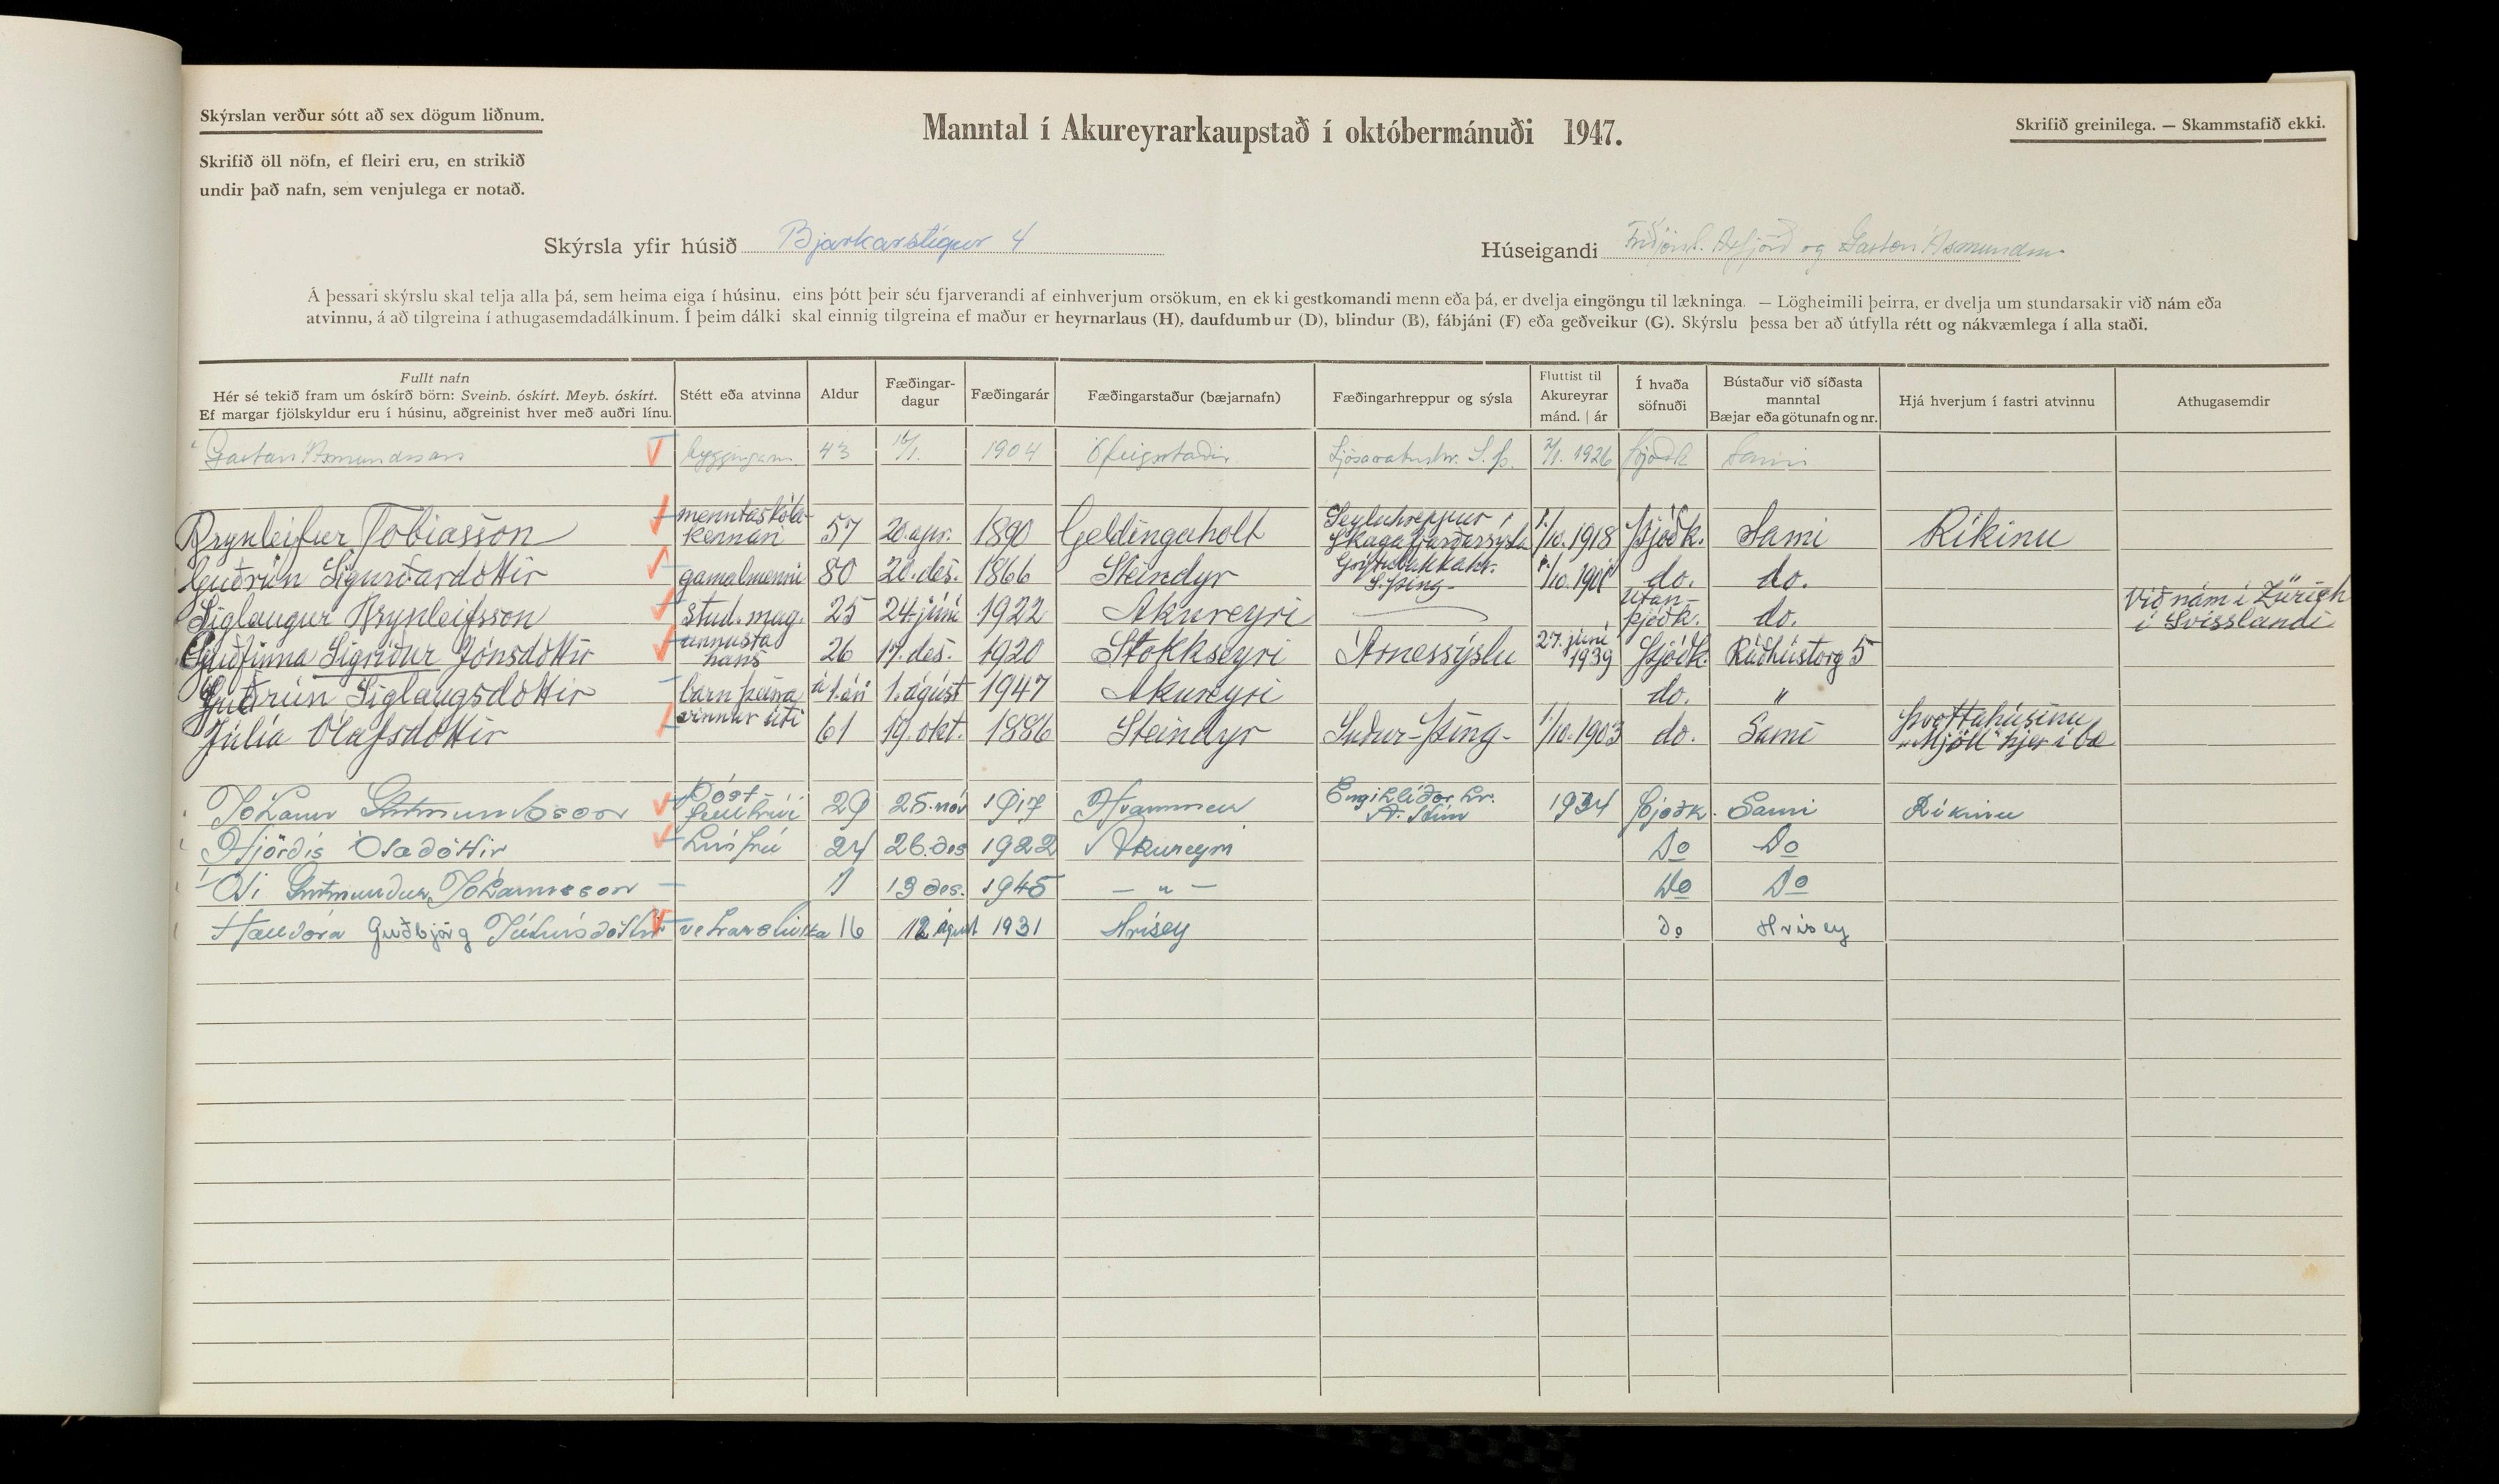 Skýrslan verður sótt að sex dögum liðnum.
Manntal í Akureyrarkaupstað í októbermánuði 1947.
Skrifið greinilega. — Skammstafið ekki.
Skrifið öll nöfn, ef fleiri eru, en strikið
undir það nafn, sem venjulega er notað.
Skýrsla yfir húsið Bjarkarstígur 4
Húseigandi og Gaston Ásmundsson
Á þessari skýrslu skal telja alla þá, sem heima eiga í húsinu, eins þótt þeir séu fjarverandi af einhverjum orsökum, en ekki gestkomandi menn eða þá, er dvelja eingöngu til lækninga. — Lögheimili þeirra, er dvelja um stundarsakir við nám eða
atvinnu, á að tilgreina í athugasemdadálkinum. Í þeim dálki skal einnig tilgreina ef maður er heyrnarlaus (H), daufdumbur (D), blindur (B), fábjáni (F) eða geðveikur (G). Skýrslu þessa ber að útfylla rétt og nákvæmlega í alla staði.
Fullt nafn
Hér sé tekið fram um óskírð börn: Sveinb. óskírt. Meyb. óskírt.
Ef margar fjölskyldur eru í húsinu, aðgreinist hver með auðri línu.
Stétt eða atvinna
Aldur
Fæðingar-
dagur
Fæðingarár
Fæðingarstaður (bæjarnafn)
Fæðingarhreppur og sýsla
Fluttist til
Akureyrar
mánd. | ár
Í hvaða
söfnuði
Bústaður við síðasta
manntal
Bæjar eða götunafn og nr.
Hjá hverjum í fastri atvinnu
Athugasemdir
Gaston Ásmundsson byggingam. 43 16/1. 1904 Ófeigsstaðir Ljósavatnshr. S. Þ. 1926 Þjóðk Sami
Brynleifur Tobiasson menntaskóla-kennari 57 20. apr. 1890 Geldingaholt Seyluhreppur, Skagafjarðarsýsla 1/10. 1918 Þjóðk. Sami Ríkinu
Guðrún Sigurðardóttir gamalmenni 80 20. des. 1866 Steindyr S. Þing- do. do.
Siglaugur Brynleifsson stud. mag. 25 24. júní 1922 Akureyri — utan-þjóðk. do. Við nám í Zürich í Svisslandi
Guðfinna Sigríður Jónsdóttir unnusta hans 26 17. des. 1920 Stokkseyri Árnessýslu 27. júní 1939 Þjóðk. Ráðhústorg 5
Guðrún Siglaugsdóttir barn þeirra á 1. ári 1. ágúst 1947 Akureyri do. "
Júlía Ólafsdóttir vinnur úti 61 19. okt. 1886 Steindyr Suður-Þing- 1/10. 1903 do. Sami Þvottahúsinu „Mjöll" hjer í bæ
Jóhann Guðmundsson Póst-fulltrúi 29 25. nóv 1917 Hvammur Engihlíðar hr. A. Hún 1934 Þjóðk. Sami Ríkinu
Hjördís Óladóttir húsfrú 24 26. des 1922 Akureyri Do Do
Óli Guðmundur Jóhannsson 1 13 des. 1945 — " — Do Do
Halldóra Guðbjörg Júlíusdóttir vetrarstúlka 16 12 ágúst 1931 Hrísey do Hrísey